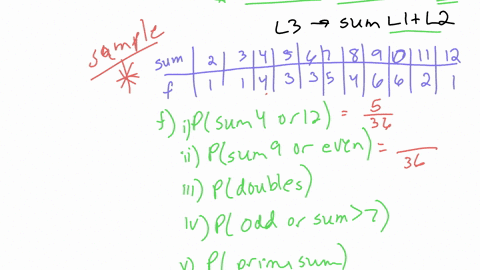 L3 → sum L1+L2
sample
sum 2 3 4 5 6 7 8 9 10 11 12
f 1 1 4 3 3 5 4 6 6 2 1
f) i) P(sum 4 or 12) = 5/36
ii) P(sum 9 or even) = /36
iii) P(doubles)
iv) P(odd or sum>7)
v) P(prime sum)